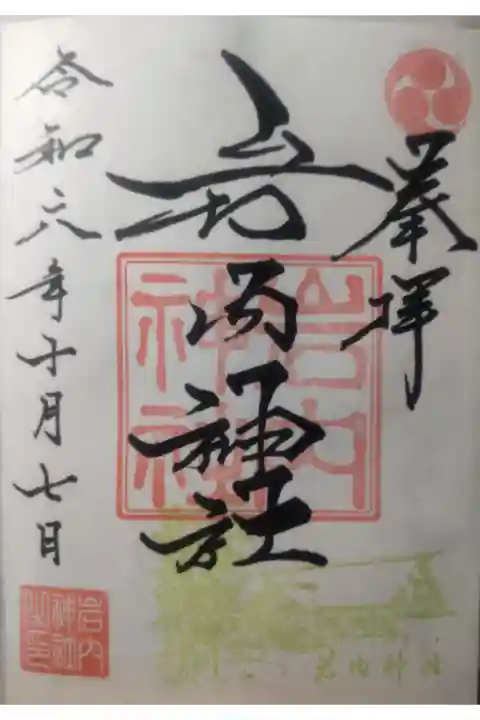 奉拝
岩内神社
岩内神社
令和六年十月七日
岩内神社之印
岩内神社